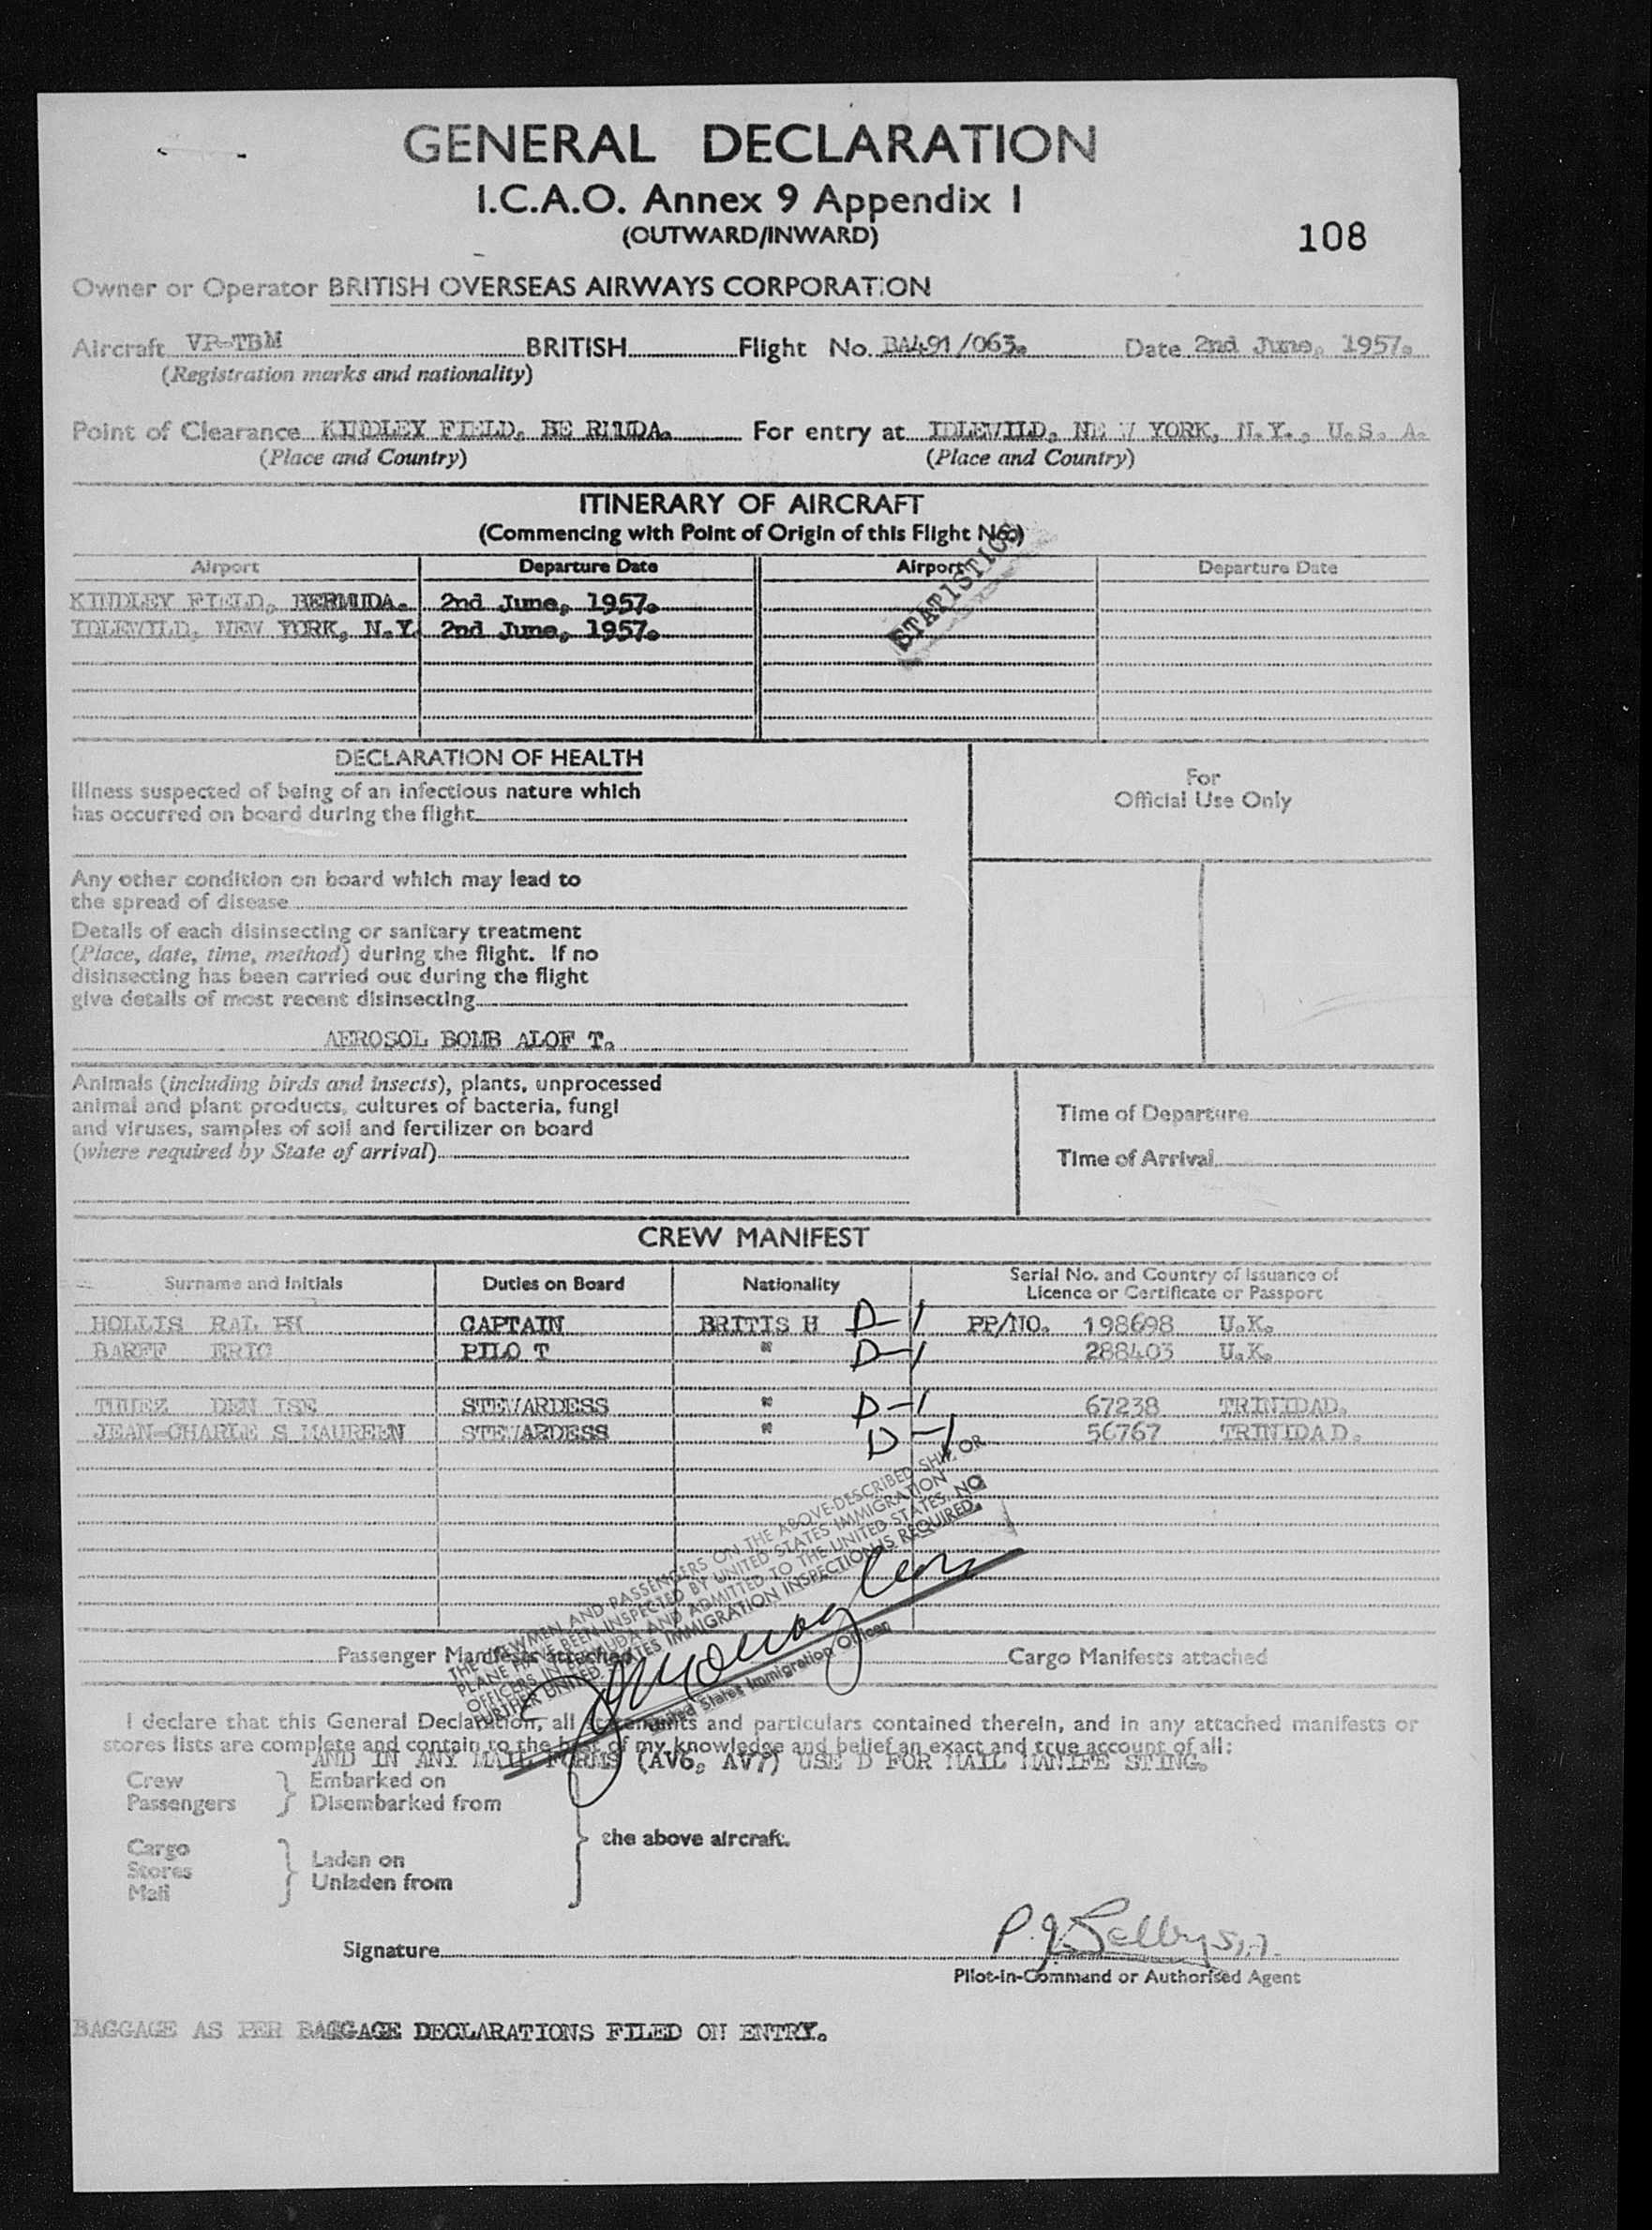 GENERAL DECLARATION
I.C.A.O. Annex 9 Appendix 1
(OUTWARD/INWARD)
108
Owner or Operator BRITISH OVERSEAS AIRWAYS CORPORATION
Aircraft VP-TBM BRITISH Flight No. BA491/063. Date 2nd June, 1957.
(Registration marks and nationality)
Point of Clearance KINDLEY FIELD, BE RMUDA. For entry at IDLEWILD, NE W YORK, N.Y., U.S. A.
(Place and Country) (Place and Country)
ITINERARY OF AIRCRAFT
(Commencing with Point of Origin of this Flight No.)
STATISTICS
Airport Departure Date Airport Departure Date
KINDLEY FIELD, BERMUDA. 2nd June, 1957.
IDLEWILD, NEW YORK, N.Y. 2nd June, 1957.
DECLARATION OF HEALTH
Illness suspected of being of an infectious nature which
has occurred on board during the flight
For
Official Use Only
Any other condition on board which may lead to
the spread of disease
Details of each disinsecting or sanitary treatment
(Place, date, time, method) during the flight. If no
disinsecting has been carried out during the flight
give details of most recent disinsecting
AEROSOL BOMB ALOF T.
Animals (including birds and insects), plants, unprocessed
animal and plant products, cultures of bacteria, fungi
and viruses, samples of soil and fertilizer on board
(where required by State of arrival)
Time of Departure
Time of Arrival
CREW MANIFEST
Surname and Initials Duties on Board Nationality Serial No. and Country of Issuance of
Licence or Certificate or Passport
HOLLIS RAL PH CAPTAIN BRITIS H D-1 PP/NO. 198698 U.K.
BARFF ERIC PILO T " D-1 288403 U.K.
DEN ISE STEWARDESS " D-1 67238 TRINIDAD.
JEAN-CHARLE S MAUREEN STEWARDESS " D-1 56767 TRINIDA D.
THE CREWMEN AND PASSENGERS ON THE ABOVE-DESCRIBED SHIP OR
PLANE HAVE BEEN INSPECTED BY UNITED STATES IMMIGRATION
OFFICERS IN BERMUDA AND ADMITTED TO THE UNITED STATES. NO
FURTHER UNITED STATES IMMIGRATION INSPECTION IS REQUIRED.
United States Immigration Officer
Passenger Manifests attached Cargo Manifests attached
I declare that this General Declaration, all statements and particulars contained therein, and in any attached manifests or
stores lists are complete and contain to the best of my knowledge and belief an exact and true account of all:
AND IN ANY MAIL FORMS (AV6, AV7) USE D FOR MAIL MANIFE STING.
Crew Embarked on
Passengers Disembarked from
the above aircraft.
Cargo
Stores Laden on
Mail Unladen from
Signature P. J. Selby S/A.
Pilot-in-Command or Authorised Agent
BAGGAGE AS PER BAGGAGE DECLARATIONS FILED ON ENTRY.